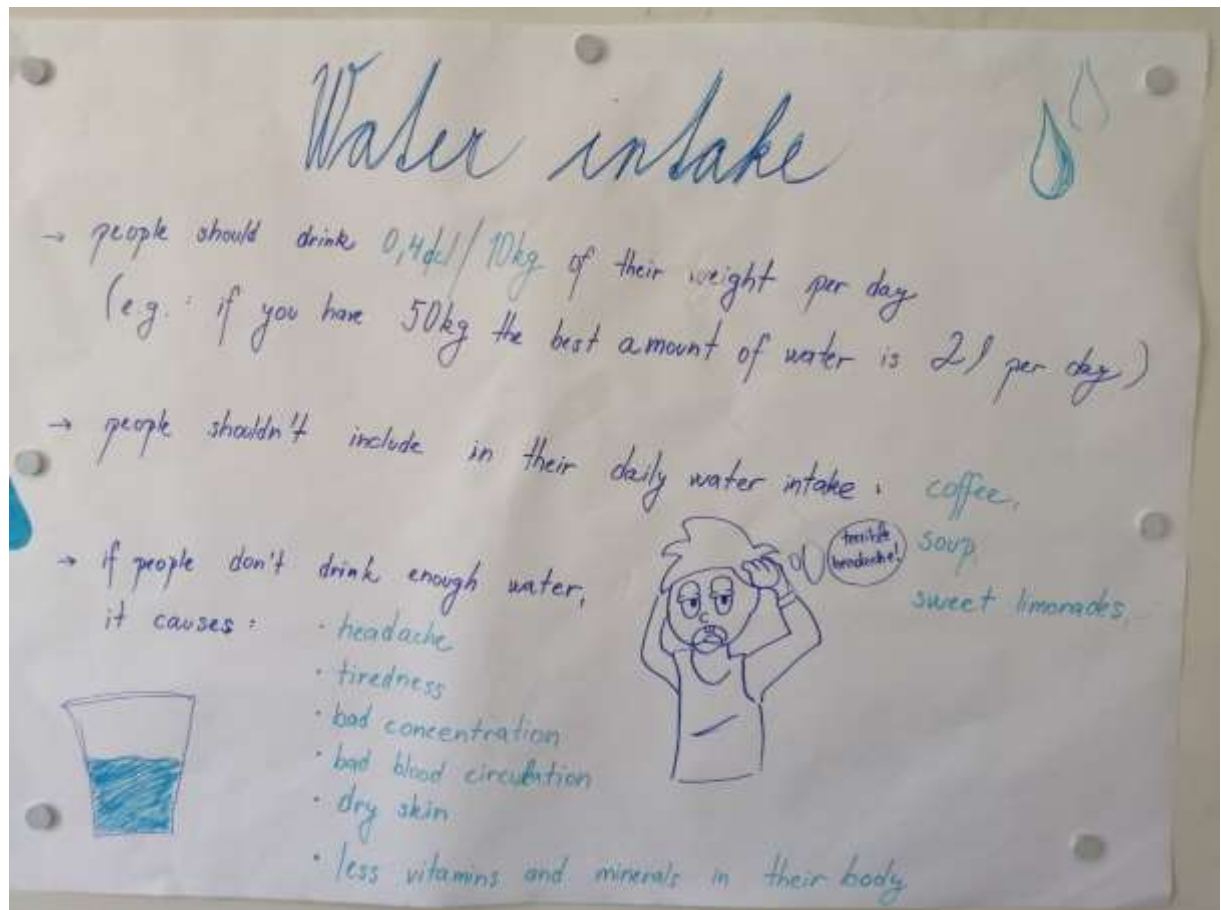 Water intake
→ people should drink 0,4dcl/10kg of their weight per day
(e.g.: if you have 50kg the best amount of water is 2l per day)
→ people shouldn't include in their daily water intake: coffee,
soup,
sweet limonades,
terrible
headache!
→ if people don't drink enough water,
it causes:
· headache
· tiredness
· bad concentration
· bad blood circulation
· dry skin
· less vitamins and minerals in their body